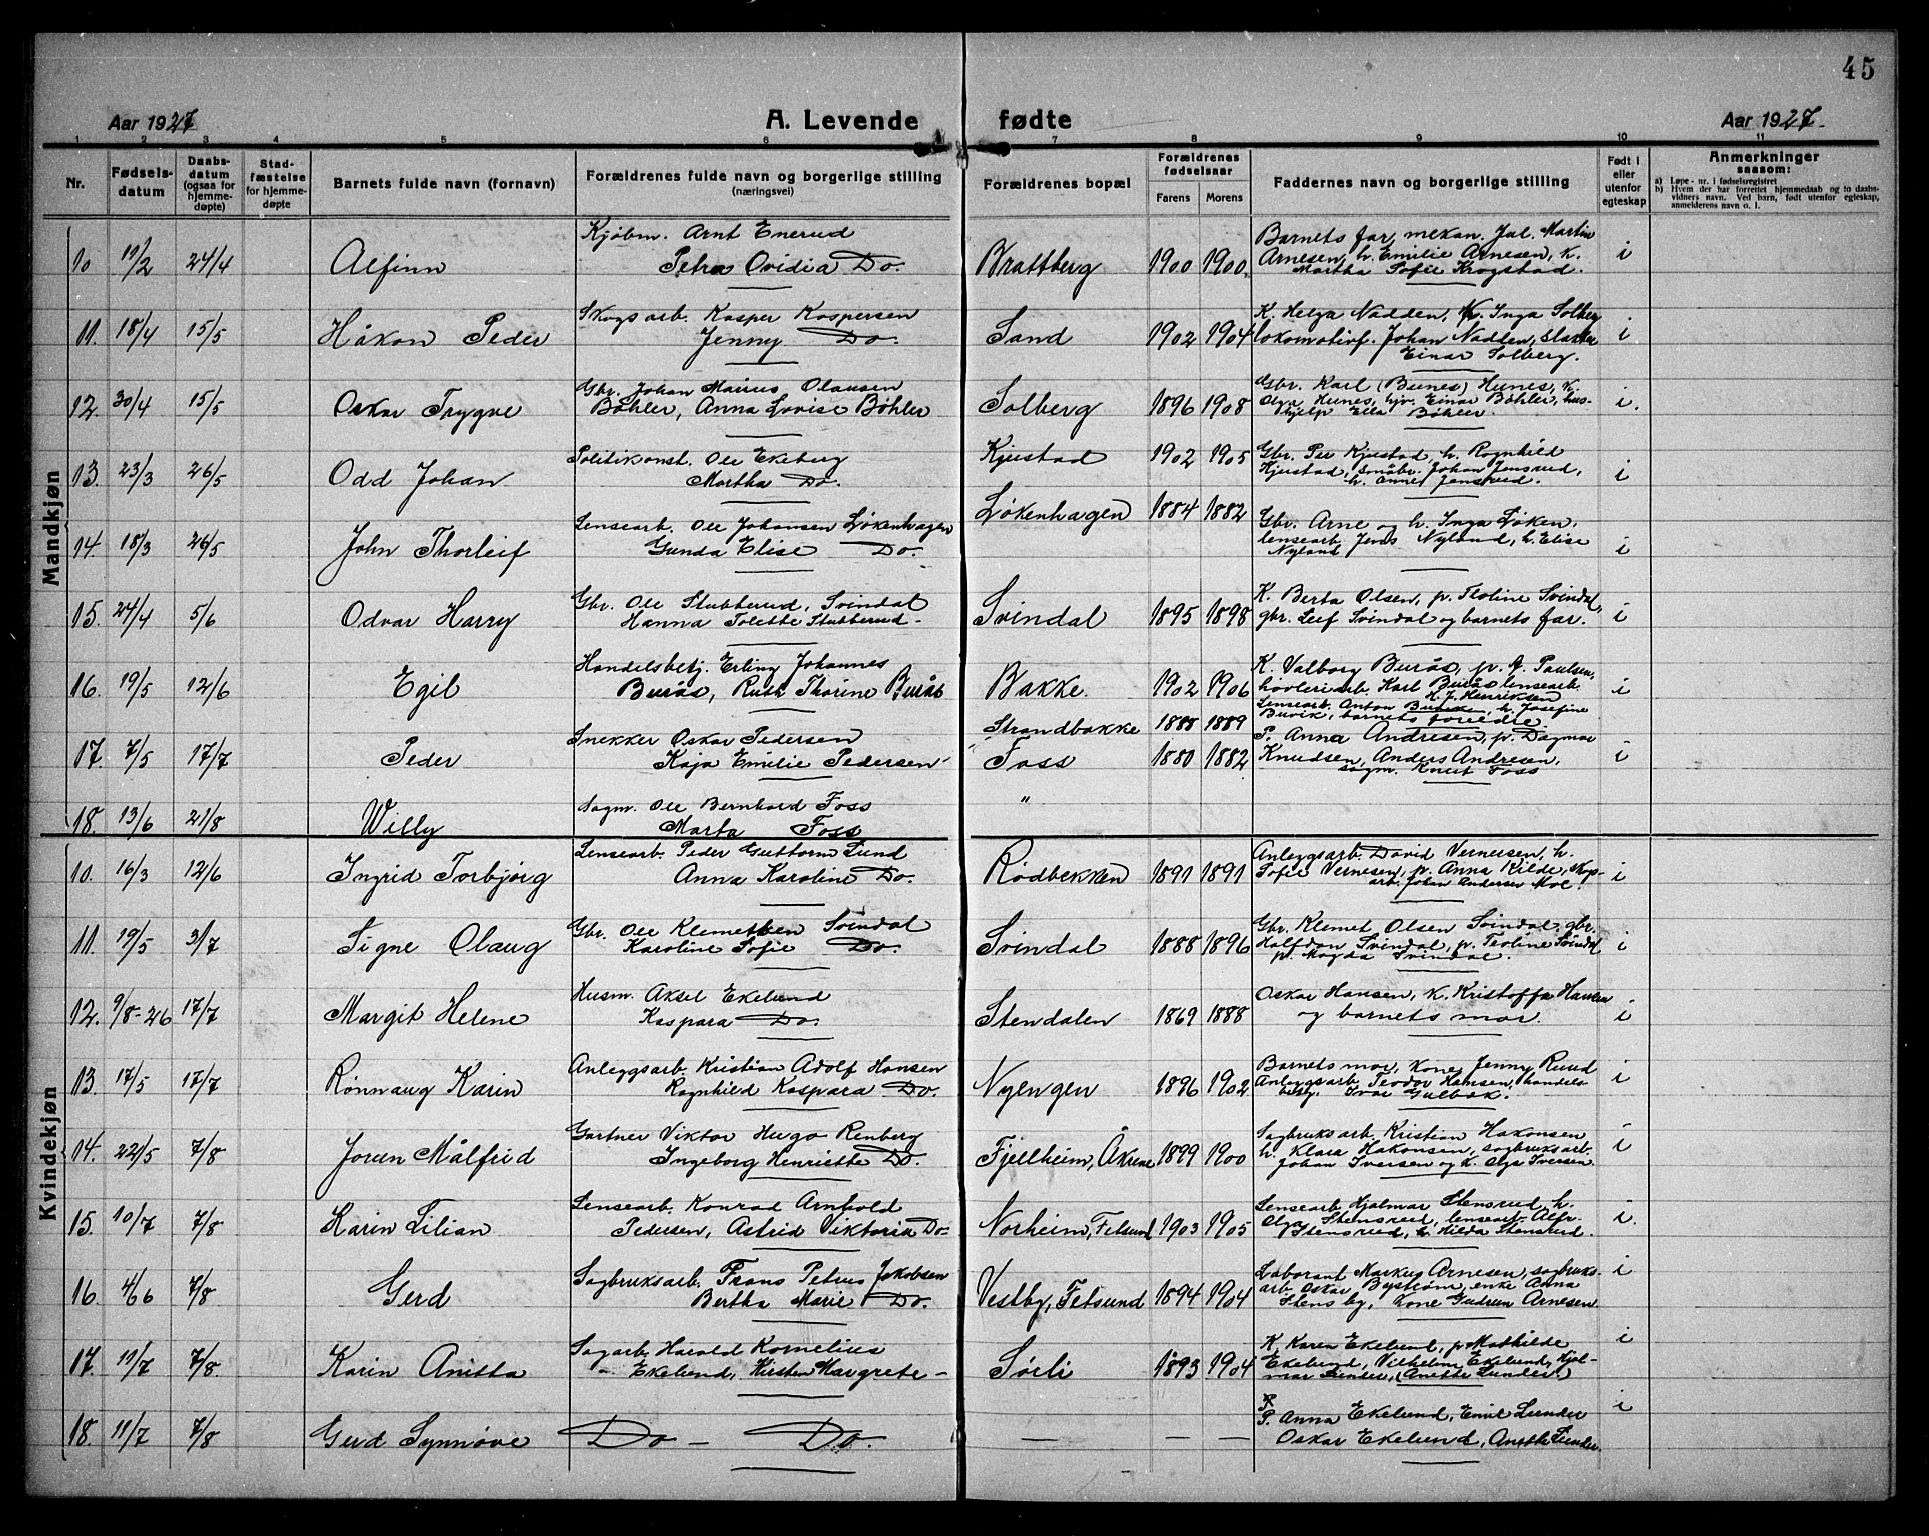 45
Aar 1927
A. Levende fødte
Aar 1927
1 2 3 4 5 6 7 8 9 10 11
Nr.
Fødsels-
datum
Daabs-
datum
(ogsaa for
hjemme-
døpte)
Stad-
fæstelse
for hjemme-
døpte
Barnets fulde navn (fornavn)
Forældrenes fulde navn og borgerlige stilling
(næringsvei)
Forældrenes bopæl
Forældrenes
fødselsaar
Farens Morens
Faddernes navn og borgerlige stilling
Født i
eller
utenfor
egteskap
Anmerkninger
saasom:
a) Løpe-nr. i fødselsregistret
b) Hvem der har forrettet hjemmedaab og to daabs-
vidners navn. Ved barn, født utenfor egteskap,
anmelderens navn o. l.
Mandkjøn
10 11/2 24/4 Alfinn
Kjøbm. Arnt Enerud
Petra Ovidia Do.
Brattberg 1900 1900
Barnets far, mekan. Jal. Martin
Arnesen, h. Emilie Arnesen, k.
Martha Sofie Krogstad.
i
11. 18/4 15/5 Håkon Peder
Skogsarb. Kasper Kaspersen
Jenny Do.
Sand 1902 1904
K. Helga Nadden, k. Inga Solberg
lokomotivf. Johan Nadden, slakter
Einar Solberg.
i
12. 30/4 15/5 Oskar Trygve
Gbr. Johan Marius Olausen
Bøhler, Anna Lovise Bøhler
Solberg 1896 1908
Gbr. Karl (Bunes) Hunes, k.
Olga Hunes, hjv. Einar Bøhler, hus-
hjelp Ella Bøhler.
i.
13. 23/3 26/5 Odd Johan
Politikonst. Ole Ekeberg
Martha Do.
Kjustad 1902 1905
Gbr. Per Kjustad, h. Ragnhild
Kjustad, småbr. Johan Jensrud,
h. Anne Jensrud.
i
14. 18/3 26/5 John Thorleif
Lensearb. Ole Johansen Løkenhagen
Gunda Elise Do.
Løkenhagen 1884 1882
Gbr. Arne og h. Inga Løken,
lensearb. Jens Nyland, h. Elise
Nyland
i
15. 24/4 5/6 Odvar Harry
Gbr. Ole Stubberud, Svindal
Hanna Tolette Stubberud
Svindal 1895 1898
K. Berta Olsen, p. Teoline Svindal,
gbr. Leif Svindal og barnets far.
i
16. 19/5 12/6 Egil
Handelsbetj. Erling Johannes
Burås, Ruth Thorine Burås
Bakke. 1902 1906
K. Valborg Burås, p. A. Paulsen,
høvleriarb. Karl Burås, lensearb.
H. J. Henriksen
i
17. 7/5 17/7 Peder
Snekker Oskar Pedersen
Kaja Emilie Pedersen
Strandbakke 1888 1889
Lensearb. Anton Buvike, h. Josefine
Buvik, barnets foreldre.
18. 13/6 21/8 Willy
Sagm. Ole Bernhard Foss
Marta Foss
Foss 1880 1882
"
P. Anna Andresen, p. Dagmar
Knudsen, Anders Andresen,
sagm. Knut Foss
i
Kvindekjøn
10. 16/3 12/6 Ingrid Torbjørg
Lensearb. Peder Guttorm Lund
Anna Karoline Do.
Rødbekken 1891 1891
Anleggsarb. David Vernesen, h.
Sofie Vernesen, p. Anna Kilde, skogs-
arb. Johan Andersen Moe.
i
11. 19/5 3/7 Signe Olaug
Gbr. Ole Klemetsen Svindal
Karoline Sofie Do.
Svindal 1888 1896
Gbr. Klemet Olsen Svindal, gbr.
Halfdan Svindal, p. Teoline Svindal
p. Magda Svindal.
i
12. 9/8-26 17/7 Margit Helene
Husm. Aksel Ekelund
Kaspara Do.
Stendalen 1869 1888
Oskar Hansen, k. Kristoffa Hansen
og barnets mor.
i
13. 17/5 17/7 Rønnaug Karin
Anleggsarb. Kristian Adolf Hansen
Ragnhild Kaspara Do.
Nyengen 1896 1902
Barnets mor, kone Jenny Ruud
Anleggsarb. Teodor Hansen, handels
betj. Ivar Gulbæk.
i
14. 22/5 7/8 Jorun Målfrid
Gartner Viktor Hugo Renberg
Ingeborg Henriette Do.
Fjellheim, Åkrene 1899 1900
Sagbruksarb. Kristian Hakonsen
h. Klara Hakonsen, sagbruksarb.
Johan Iversen og k. Olga Iversen.
i
15. 10/7 7/8 Karin Lilian
Lensearb. Konrad Arnhold
Pedersen, Astrid Viktoria Do-
Norheim, Fetsund 1903 1905
Lensearb Hjalmar Stensrud h.
Olga Stensrud, lensearb. Alfr.
Stensrud, h. Hilda Stensrud.
i.
16. 4/6 7/8 Gerd
Sagbruksarb. Frans Petrus Jakobsen
Bertha Marie Do.
Vestby, Fetsund 1894 1904
Laborant Markus Arnesen, sagbruks-
arb. Oskar Byström, enke Anna
Stensby, kone Gudrun Arnesen
i
17. 11/7 7/8. Karin Anitta
Sagarb. Harald Kornelius
Ekelund, Kirsten Margrete -
Sørli 1893 1904
K. Karen Ekelund, p. Mathilde
Ekelund, Vilhelm Ekelund, Hjal-
mar Lunder, (Anette Lunder.)
i
18. 11/7 7/8 Gerd Synnøve
Do - Do.
— — —
P. Anna Ekelund, Emil Lunder
Oskar Ekelund, Anette Lunder.
i